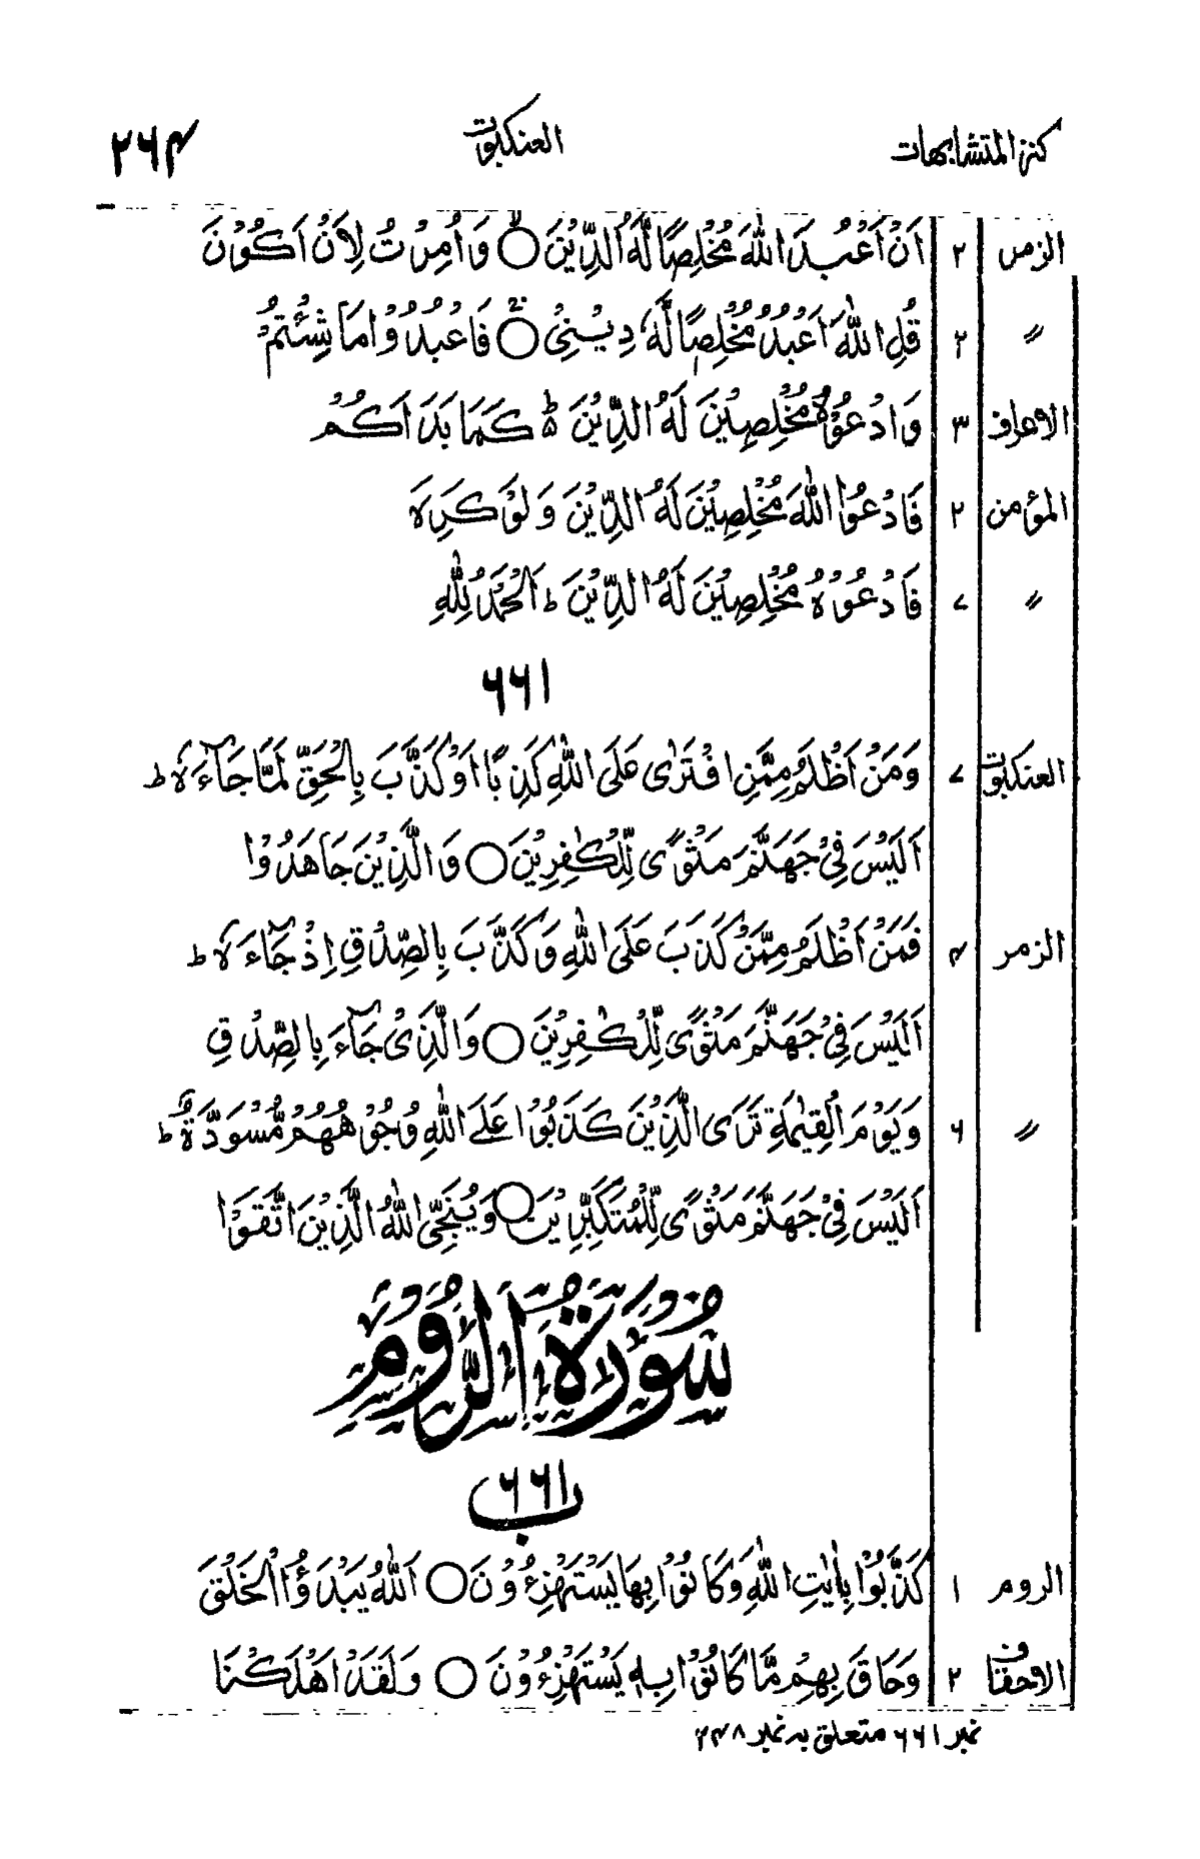 كنز المتشابهات العنكبوت ٢٦۴
الزمر ٢ اَنْ اَعْبُدَ اللّٰهَ مُخْلِصًا لَّهُ الدِّيْنَ ○ وَاُمِرْتُ لِاَنْ اَكُوْنَ
〃 ٢ قُلِ اللّٰهَ اَعْبُدُ مُخْلِصًا لَّهٗ دِيْنِىْ ○ فَاعْبُدُوْا مَا شِئْتُمْ
الاعراف ٣ وَادْعُوْهُ مُخْلِصِيْنَ لَهُ الدِّيْنَ ط كَمَا بَدَاَكُمْ
المؤمن ٢ فَادْعُوا اللّٰهَ مُخْلِصِيْنَ لَهُ الدِّيْنَ وَلَوْ كَرِهَ
〃 ٧ فَادْعُوْهُ مُخْلِصِيْنَ لَهُ الدِّيْنَ ط اَلْحَمْدُ لِلّٰهِ
٦٦١
العنكبوت ٧ وَمَنْ اَظْلَمُ مِمَّنِ افْتَرٰى عَلَى اللّٰهِ كَذِبًا اَوْ كَذَّبَ بِالْحَقِّ لَمَّا جَآءَهٗ ط
اَلَيْسَ فِىْ جَهَنَّمَ مَثْوًى لِّلْكٰفِرِيْنَ ○ وَالَّذِيْنَ جَاهَدُوْا
الزمر ۴ فَمَنْ اَظْلَمُ مِمَّنْ كَذَبَ عَلَى اللّٰهِ وَكَذَّبَ بِالصِّدْقِ اِذْ جَآءَهٗ ط
اَلَيْسَ فِىْ جَهَنَّمَ مَثْوًى لِّلْكٰفِرِيْنَ ○ وَالَّذِىْ جَآءَ بِالصِّدْقِ
〃 ٦ وَيَوْمَ الْقِيٰمَةِ تَرَى الَّذِيْنَ كَذَبُوْا عَلَى اللّٰهِ وُجُوْهُهُمْ مُّسْوَدَّةٌ ط
اَلَيْسَ فِىْ جَهَنَّمَ مَثْوًى لِّلْمُتَكَبِّرِيْنَ ○ وَيُنَجِّى اللّٰهُ الَّذِيْنَ اتَّقَوْا
سُوْرَةُ الرُّوْمِ
٦٦١ ب
الروم ١ كَذَّبُوْا بِاٰيٰتِ اللّٰهِ وَكَانُوْا بِهَا يَسْتَهْزِءُوْنَ ○ اَللّٰهُ يَبْدَؤُا الْخَلْقَ
الاحقاف ٢ وَحَاقَ بِهِمْ مَّا كَانُوْا بِهٖ يَسْتَهْزِءُوْنَ ○ وَلَقَدْ اَهْلَكْنَا
نمبر ٦٦١ متعلق بہ نمبر ٢۴٨